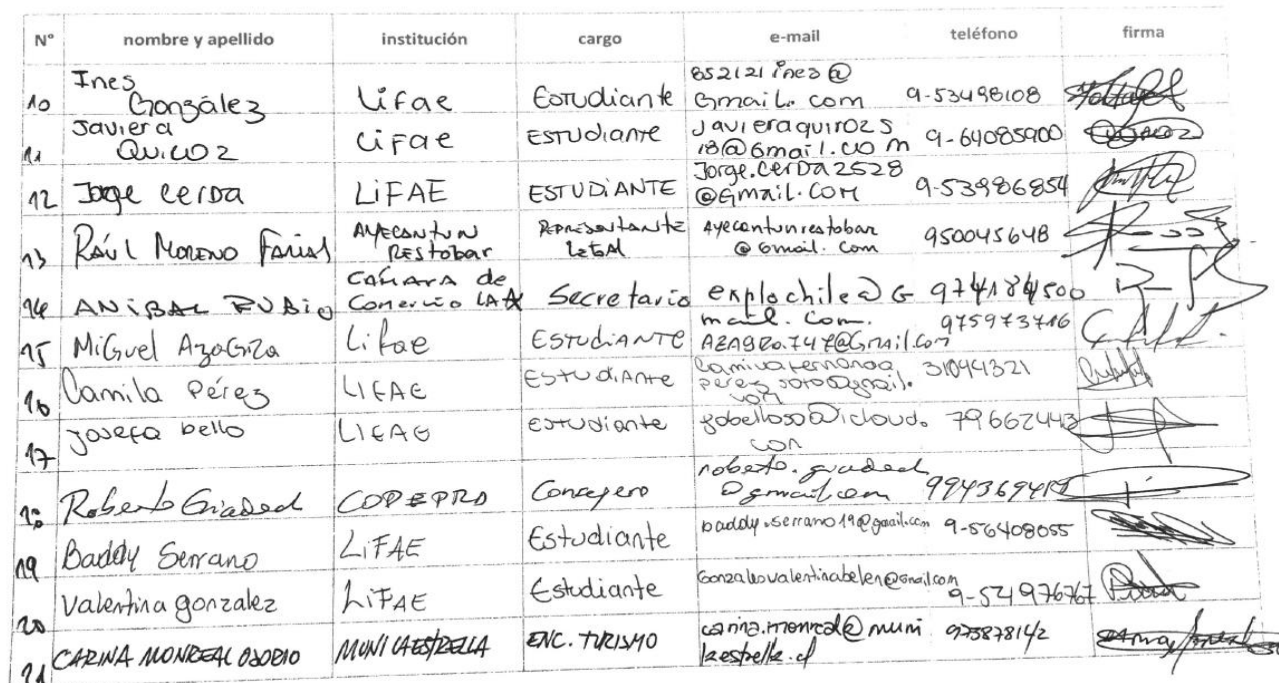 N° nombre y apellido institución cargo e-mail teléfono firma
10 Ines González Lifae Estudiante 852121ines@Gmail.com 9-53498108
11 Javiera Quiroz Lifae ESTUDIANTE Javieraquirozs18@Gmail.com 9-64085900
12 Jorge CerDa LiFAE ESTUDIANTE Jorge.CerDa2528@Gmail.Com 9-53986854
13 RAÚL MORENO FARIAS AYECANTUN RESTobar REPRESENTANTE LEGAL Ayecantunrestobar@Gmail.com 950045648
14 ANIBAL RUBIO CAMARA de Comercio Secretario explochile@Gmail.com. 974184500
15 MiGuel Lifae ESTUDIANTE 975973716
16 Camila Pérez LIFAE ESTUDIAnte 31094321
17 Josefa bello LIFAE estudiante 79662443
18 Roberto Consejero
19 Baddy Serrano LiFAE Estudiante baddy.serrano19@gmail.com 9-56408055
20 Valentina gonzalez LiFAE Estudiante Gonzalesvalentinabelen@Gmail.com 9-52197676
21 CARINA MONREAL OSORIO MUNI LAESTRELLA ENC. TURISMO carina.monreal@munilaestrella.cl